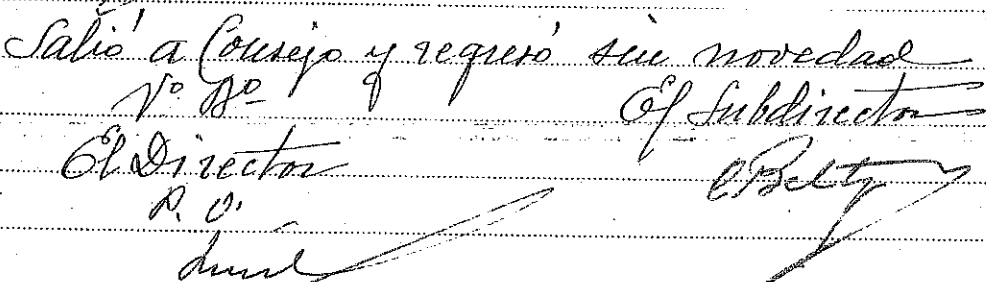 Salió a Consejo y regresó sin novedad
Vº Bº El Subdirector
El Director
P. O.